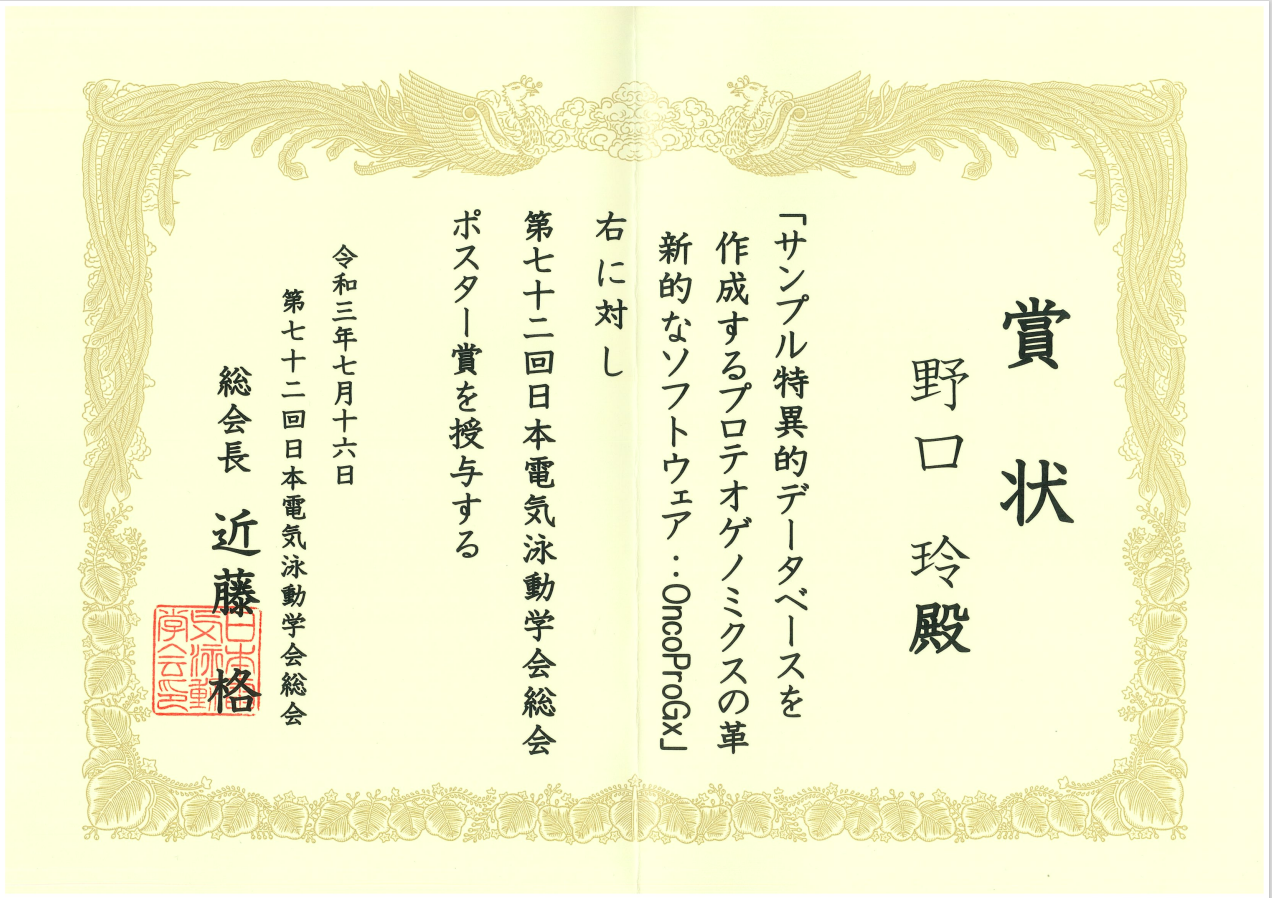 賞状
野口 玲殿
「サンプル特異的データベースを
作成するプロテオゲノミクスの革
新的なソフトウェア：OncoProGx」
右に対し
第七十二回日本電気泳動学会総会
ポスター賞を授与する
令和三年七月十六日
第七十二回日本電気泳動学会総会
総会長 近藤 格